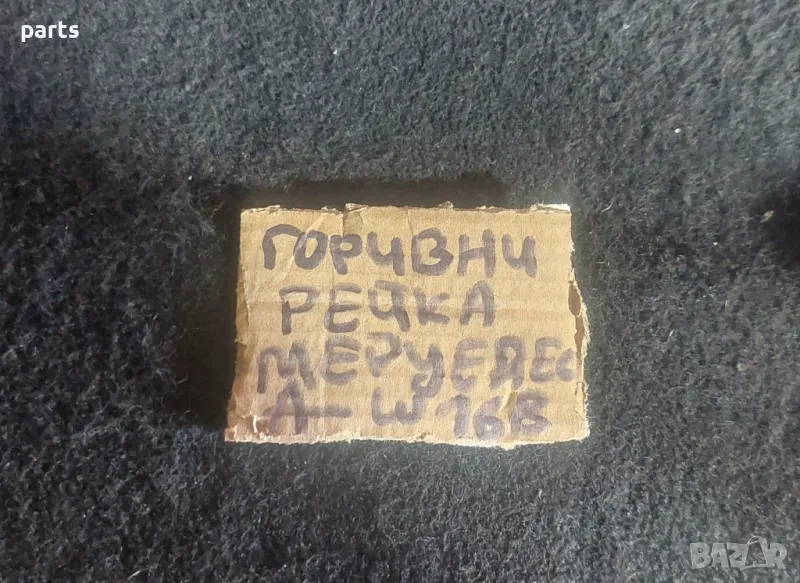 parts
ГОРИВНИ
РЕЙКА
МЕРЦЕДЕС
А-W168
BAZAR